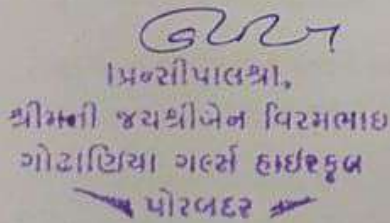 પ્રિન્સીપાલશ્રી,
શ્રીમતી જયશ્રીબેન વિરમભાઇ
ગોઢાણિયા ગર્લ્સ હાઇસ્કૂલ
પોરબંદર